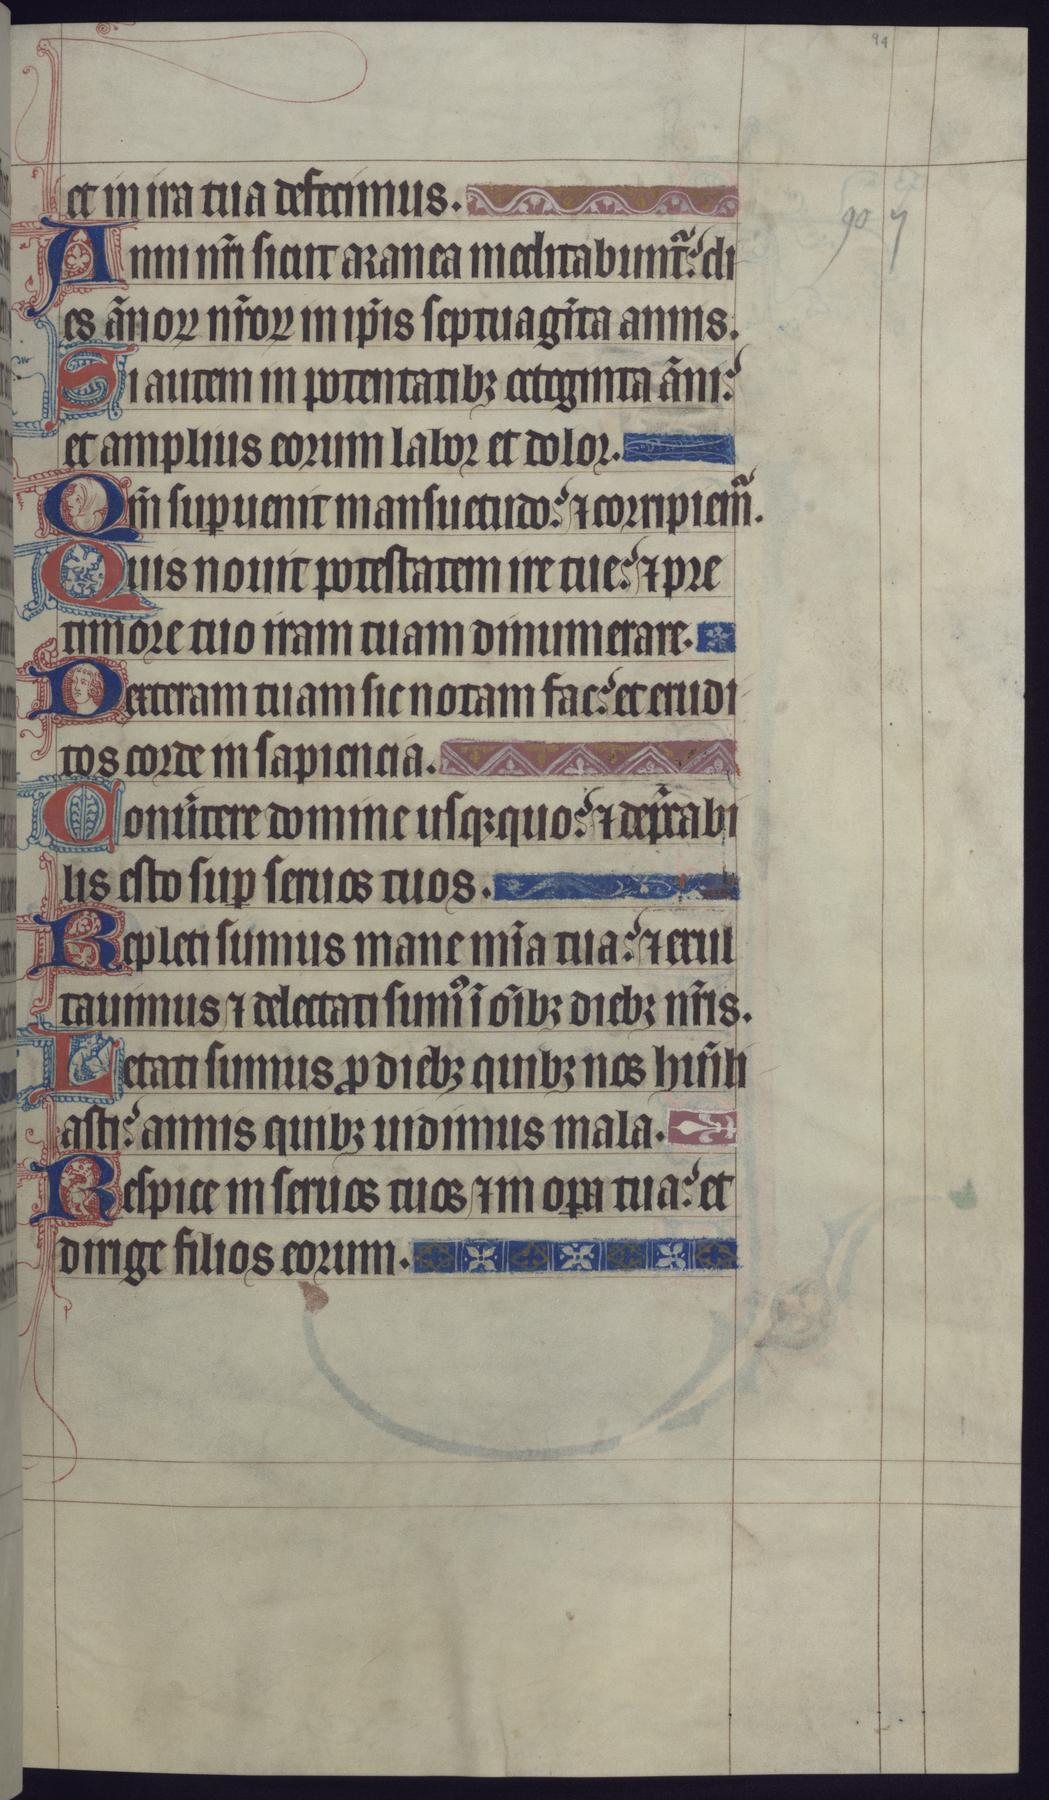 94
90 7
et in ira tua defecimus.
Anni nr̃i sicut aranea meditabunt᷑: di
es ãnoꝝ nr̃oꝝ in ip̃is septuagĩta annis.
Si autem in potentatibꝫ octoginta ãni:
et amplius eorum labor et dolor.
Qm̃ sup̱uenit mansuetudo: ⁊ corripiem̃.
Quis nouit potestatem ire tue: ⁊ pre
timore tuo iram tuam dinumerare.
Dexteram tuam sic notam fac: et erudi
tos corde in sapiencia.
Conũtere domine usqꝫquo: ⁊ dep̃cabi
lis esto suꝑ seruos tuos.
Repleti sumus mane mĩa tua: ⁊ exul
tauimus ⁊ delectati sumꝰ ĩ oĩbꝫ diebꝫ nr̃is.
Letati sumus ꝓ diebꝫ quibꝫ nos hum̃li
asti: annis quibꝫ uidimus mala.
Respice in seruos tuos ⁊ in oꝑa tua: et
dirige filios eorum.